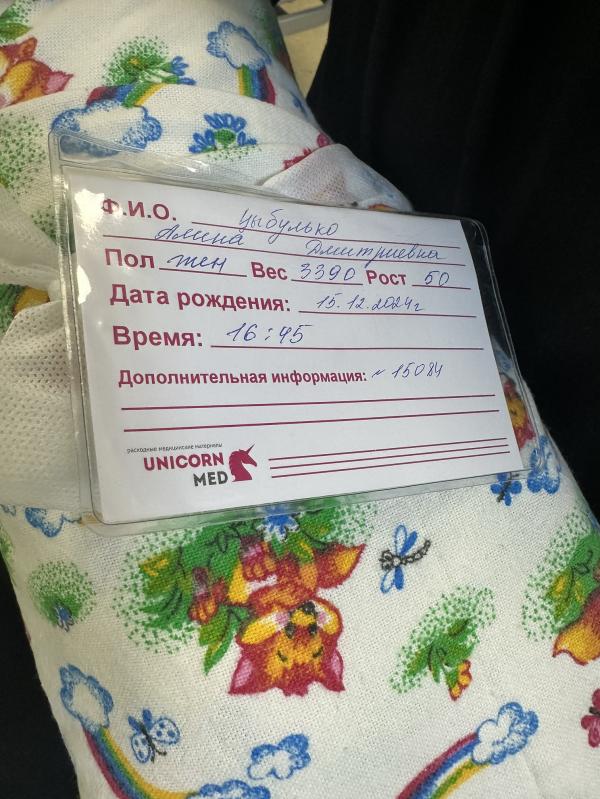 Ф.И.О. Цыбулько
Алина Дмитриевна
Пол жен Вес 3390 Рост 50
Дата рождения: 15.12.2024г
Время: 16:45
Дополнительная информация: ~ 15084
расходные медицинские материалы
UNICORN
MED